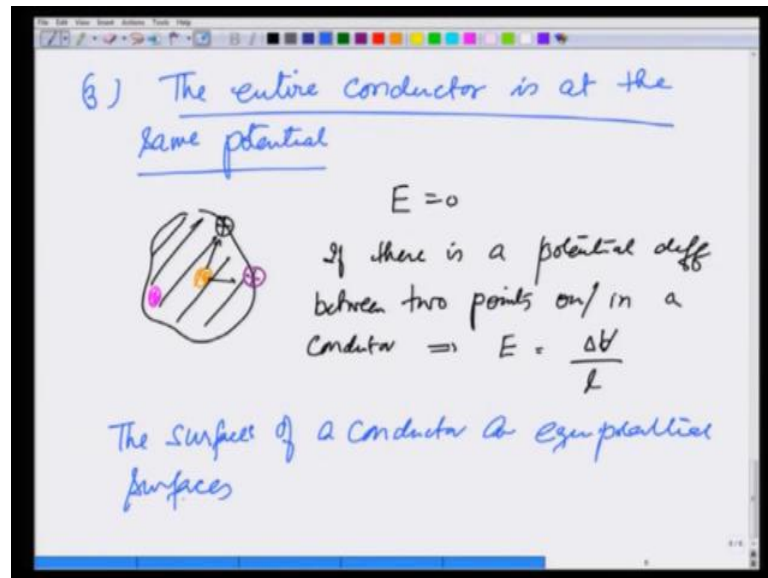 File Edit View Insert Actions Tools Help
3) The entire conductor is at the
same potential
E = 0
If there is a potential diff
between two points on/in a
Condutor ⇒ E = ΔV/l
The surfaces of a conductor are equipotential
surfaces